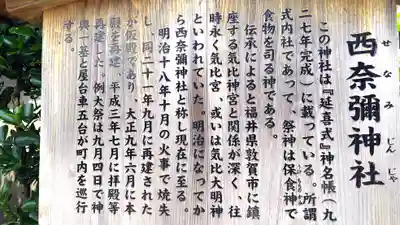 西奈彌神社
せなみ じんじゃ
この神社は『延喜式』神名帳(九
二七年完成)に載っている。所謂
式内社であって、祭神は保食神で
食物を司る神である。
伝承によると福井県敦賀市に鎮
座する気比神宮と関係が深く、往
時永く気比宮、或いは気比大明神
といわれていた。明治になってか
ら西奈彌神社と称し現在に至る。
明治十八年十月の火事で焼失
し、同二十一年九月に再建された
が仮殿であり、大正九年六月に本
殿を再建、平成三年七月に拝殿等
再建した。例大祭は九月四日で神
輿一基と屋台車五台が町内を巡行
する。